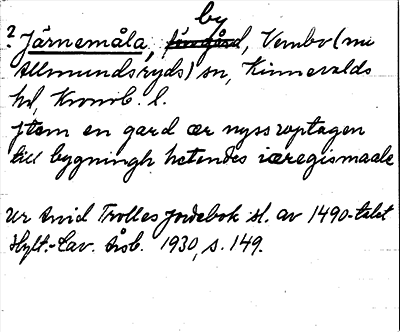 by
? Järnemåla, förgård, Vembo (nu
Allmundsryds) sn, Kinnevalds
hd, Kronob. l.
Jtem en gard ær nyss vptagen
till bygningh hetendes iæregismaale
Ur Arvid Trolles jordebok sl. av 1490-talet
Hylt.-Cav. årsb. 1930, s. 149.